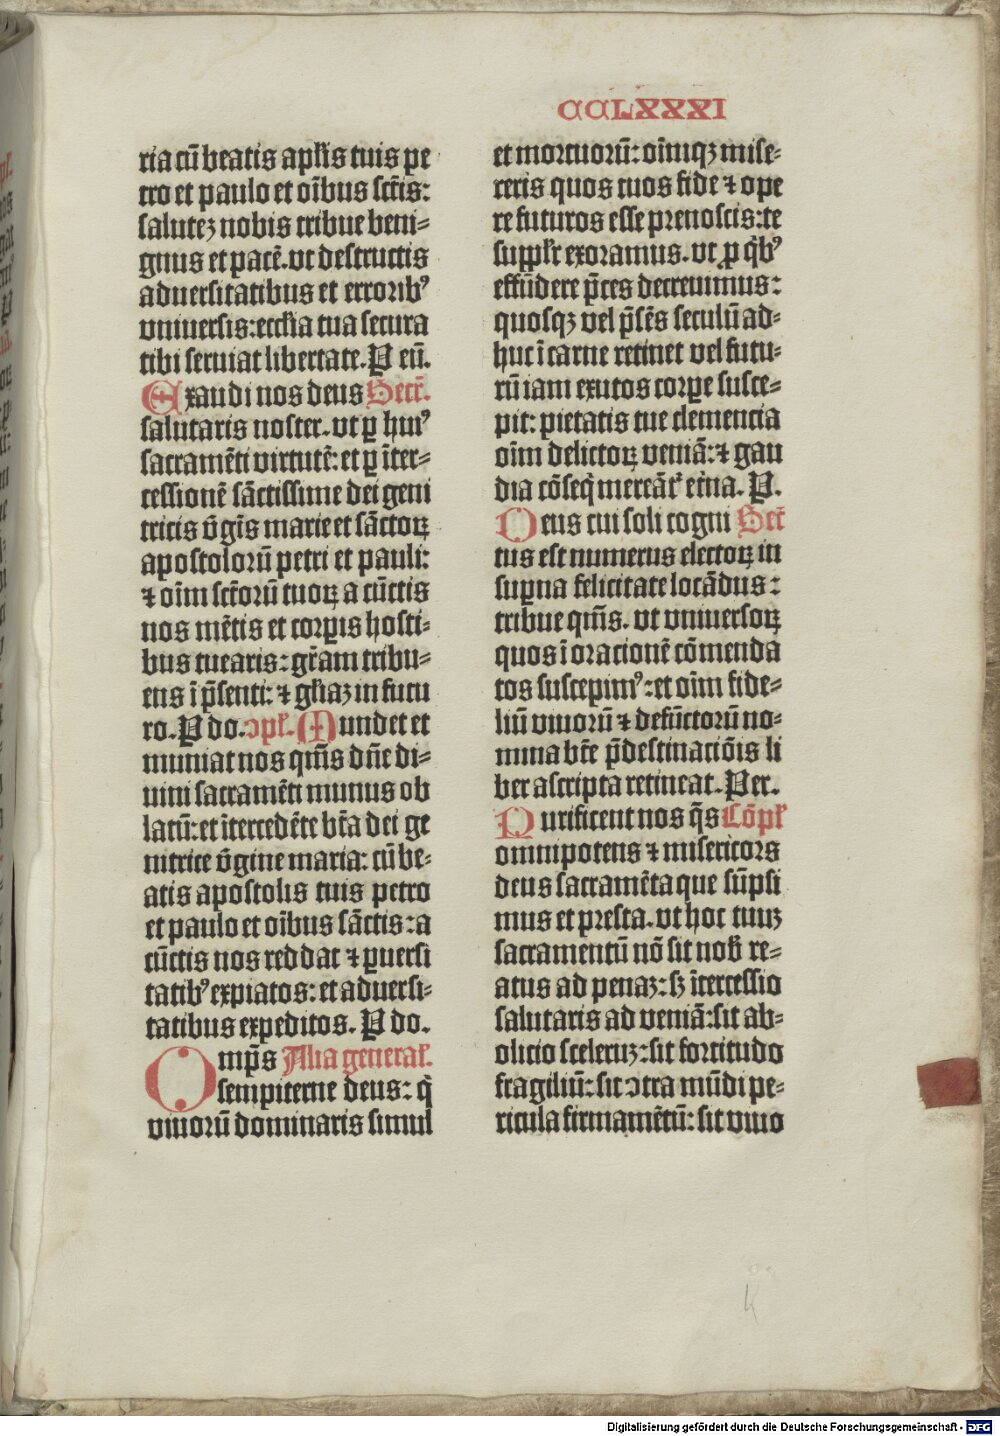 CCLXXXI
ria cū beatis aplis tuis pe
tro et paulo et oībus sctīs:
salutez nobis tribue beni-
gnus et pacē. vt destructis
aduersitatibus et errorib⁹
vniuersis: ecclia tua secura
tibi seruiat libertate. P eū.
Exaudi nos deus Secr̄.
salutaris noster. vt ꝑ hui⁹
sacramēti virtutē: et ꝑ īter-
cessionē sāctissime dei geni
tricis v̄gīs marie et sāctoꝝ
apostolorū petri et pauli:
⁊ oīm sctōrū tuoꝝ a cūctis
nos mētis et corꝑis hosti-
bus tuearis: gr̄am tribu-
ens ī p̄senti: ⁊ gl̄iaz in futu
ro. P do. ↄpl̄. Mundet et
muniat nos qm̄s dn̄e di-
uini sacramēti munus ob
latū: et ītercedēte btā dei ge
nitrice v̄gine maria: cū be-
atis apostolis tuis petro
et paulo et oībus sāctis: a
cūctis nos reddat ⁊ ꝑuersi
tatib⁹ expiatos: et aduersi-
tatibus expeditos. P do.
Omp̄s Alia general̄.
sempiterne deus: q̄
viuorū dominaris simul
et mortuorū: oīmqꝫ mise-
reris quos tuos fide ⁊ ope
re futuros esse prenoscis: te
suppl̄r exoramus. vt ꝓ qb⁹
effūdere p̄ces decreuimus:
quosqꝫ vel p̄sēs seculū ad-
huc ī carne retinet vel futu-
rū iam exutos corꝑe susce-
pit: pietatis tue clemencia
oīm delictoꝝ veniā: ⁊ gau
dia cōseq̄ mereāt᷑ et̄na. P.
Deus cui soli cogni Secr̄
tus est numerus electoꝝ in
suꝑna felicitate locādus:
tribue qm̄s. vt vniuersoꝝ
quos ī oracionē cōmenda
tos suscepim⁹: et oīm fide-
liū viuorū ⁊ defūctorū no-
mina btē p̄destinaciōis li
ber ascripta retineat. Per.
Purificent nos q̄s Cōpl̄
omnipotens ⁊ misericors
deus sacramēta que sūpsi
mus et presta. vt hoc tuuꝫ
sacramentū nō sit nob̄ re-
atus ad penaꝫ: sꝫ ītercessio
salutaris ad veniā: sit ab-
olicio sceleruꝫ: sit fortitudo
fragiliū: sit ↄtra mūdi pe-
ricula firmamētū: sit viuo
Digitalisierung gefördert durch die Deutsche Forschungsgemeinschaft - DFG